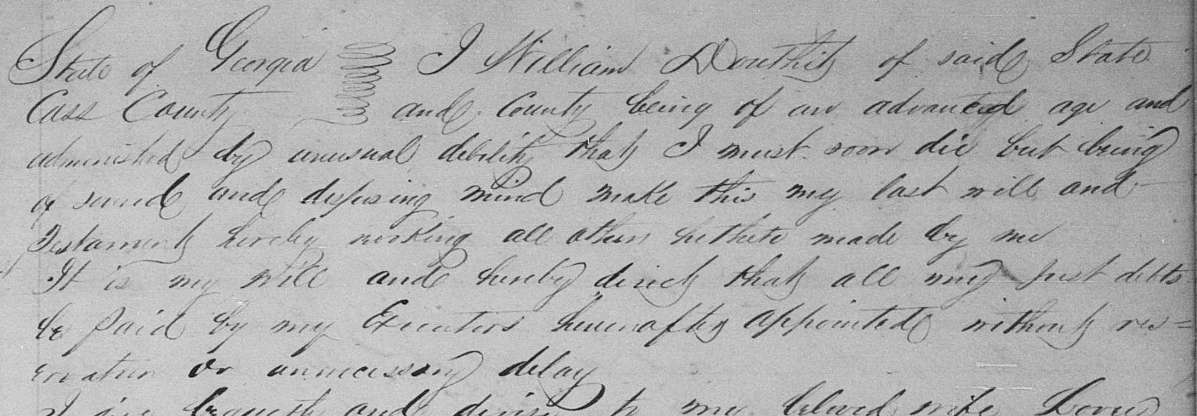 State of Georgia I William Douthit of said State
Cass County and County being of an advanced age and
admonished by unusual debility that I must soon die but being
of sound and disposing mind make this my last will and
Testament hereby revoking all others hitherto made by me
It is my will and hereby direct that all my just debts
be paid by my Executors hereinafter appointed without res=
ervation or unnecessary delay
I give bequeath and devise to my beloved wife